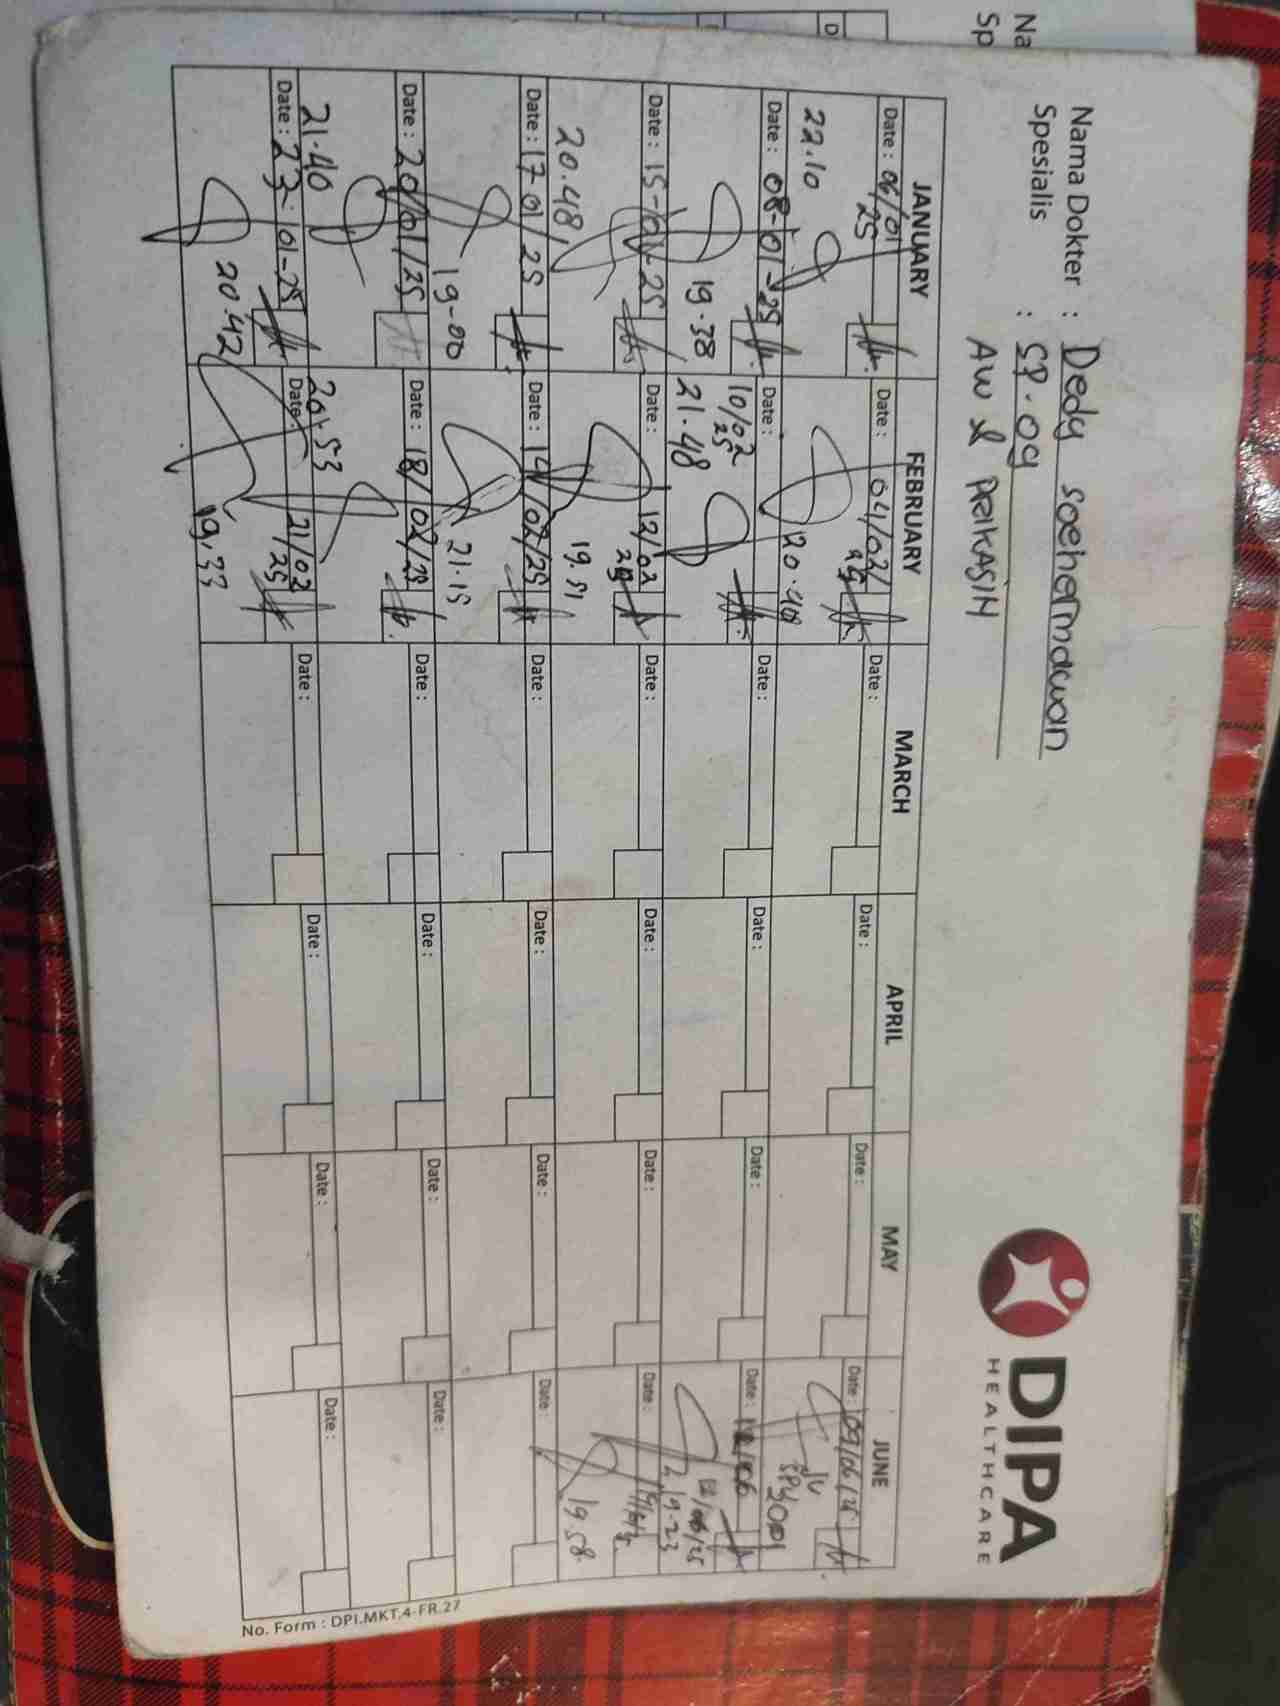 Nama Dokter : Dedy Soehermawan
Spesialis : SP.OG
AW & PRIKASIH
DIPA
HEALTHCARE
JANUARY FEBRUARY MARCH APRIL MAY JUNE
Date : 06/01/25 Date : 04/02/25 Date : Date : Date : Date : 09/06/25
22.10 20.48
Date : 08-01-25 Date : 10/02/25 Date : Date : Date : Date : 12/06
19.38 21.48 12/06/25 19.23
Date : 15-01-25 Date : 12/02/25 Date : Date : Date : Date :
20.48 19.51 19.58
Date : 17/01/25 Date : 14/02/25 Date : Date : Date : Date :
19-00 21.15
Date : 20/01/25 Date : 18/02/25 Date : Date : Date : Date :
21.40 20.53
Date : 23-01-25 Date : 21/02/25 Date : Date : Date : Date :
20.42 19.33
No. Form : DPI.MKT.4-FR.27
Na
Sp